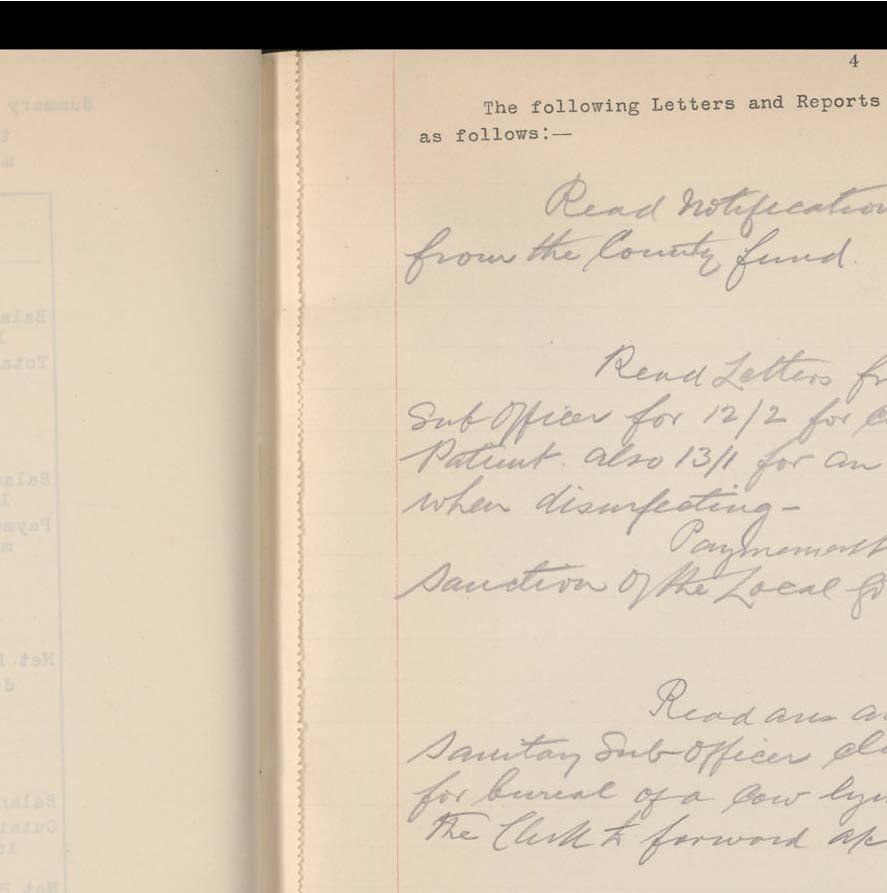 4
The following Letters and Reports
as follows:—
Read Notification
from the County fund.
Read Letters fr
Sub Officer for 12/2 for c
Patient also 13/1 for an
when disinfecting—
Payment
Sanction of the Local Go
Read an a
Sanitary Sub Officer cl
for burial of a Cow lyi
The Clerk to forward ap
Summary
t
Bala
l
Tota
Balan
l
Payme
m
Net R
d
Balan
Outst
in
Net